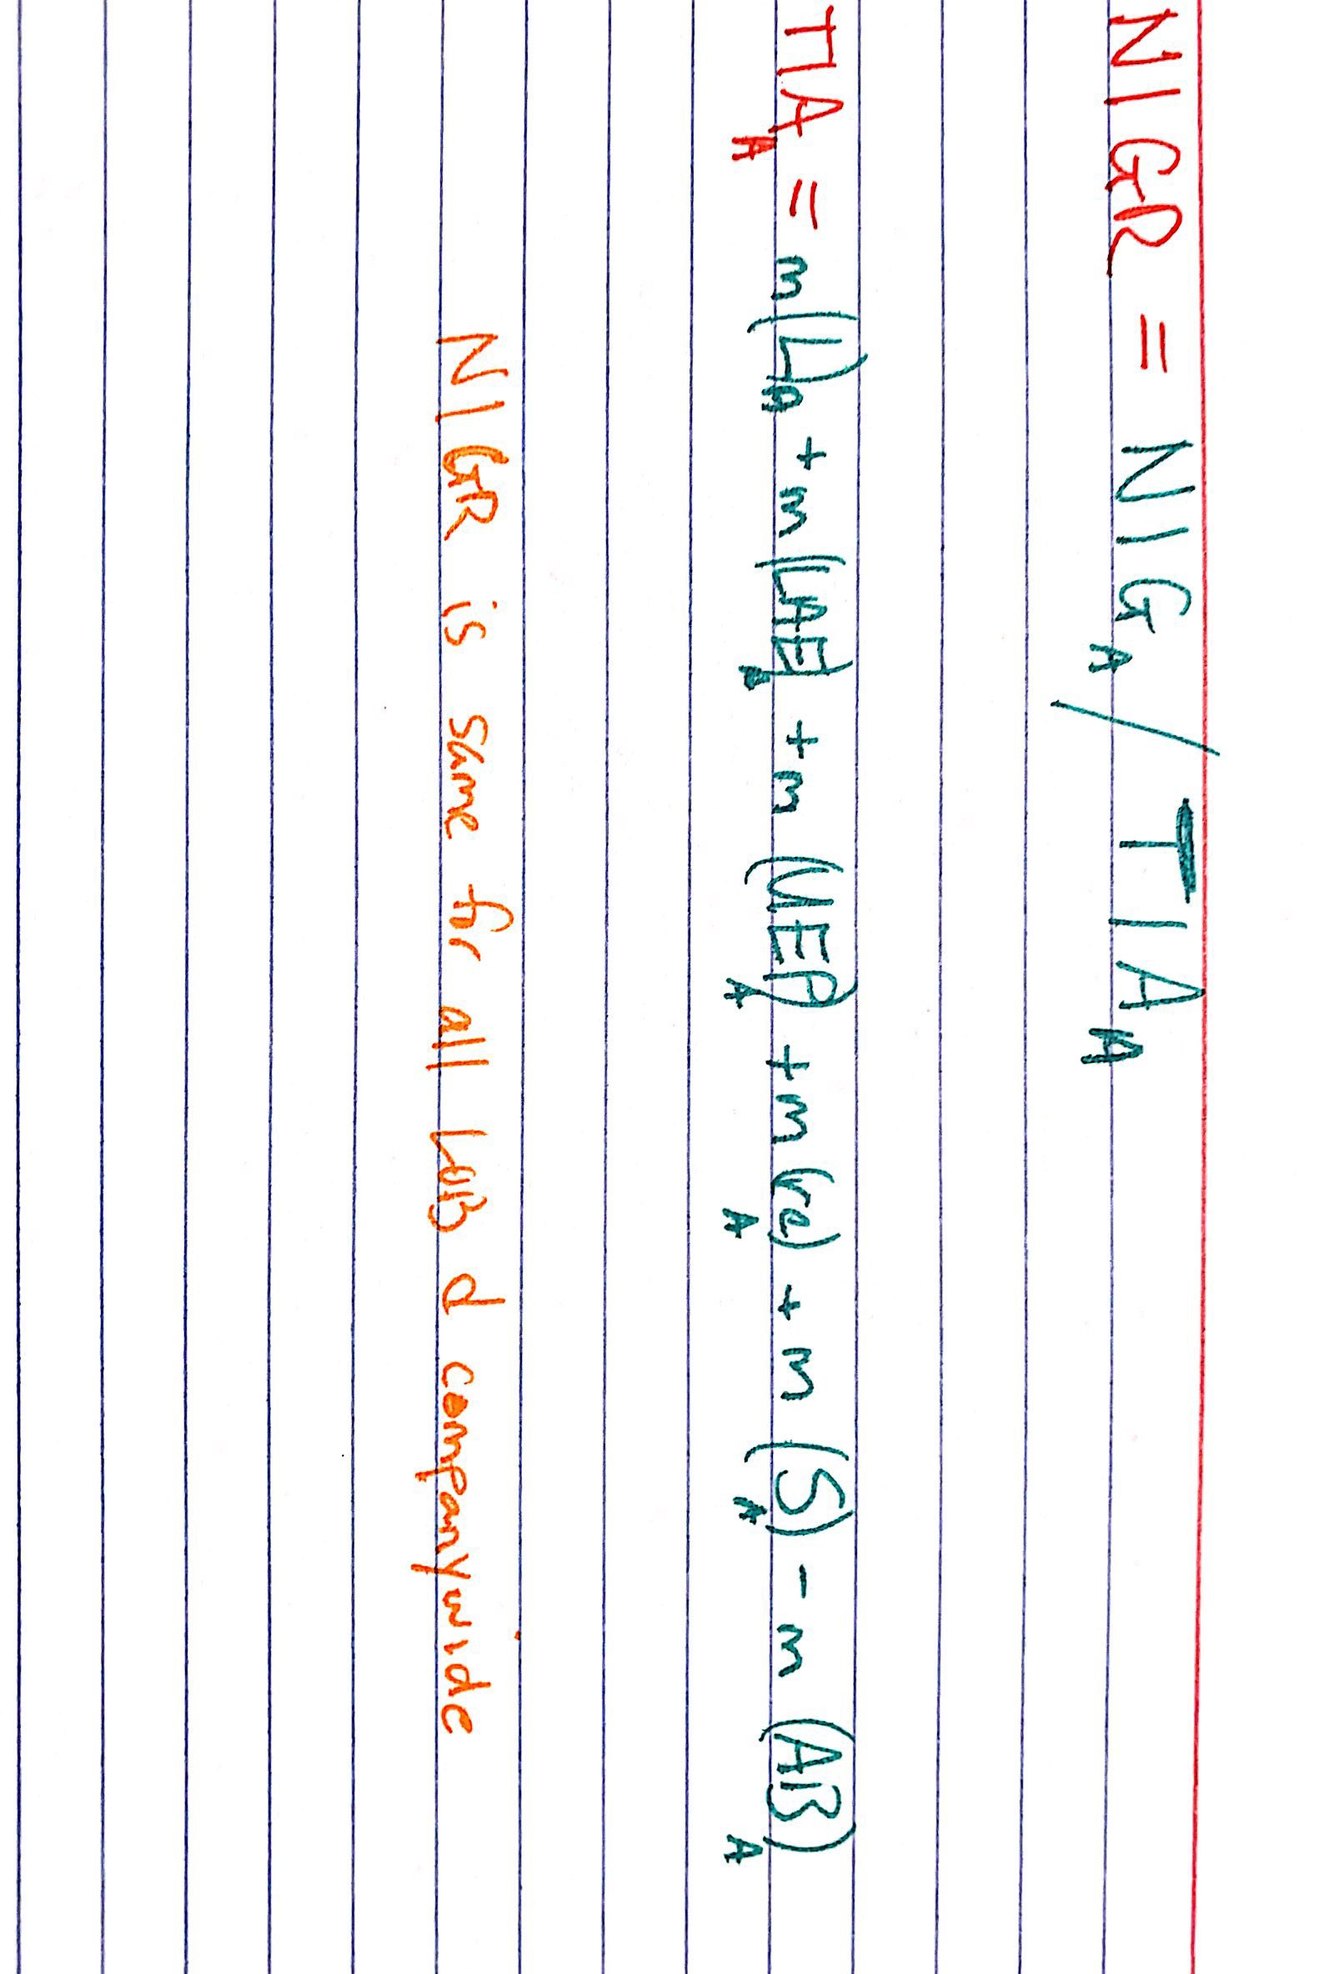 NIGR = NIG_A / TIA_A
TIA_A = m(L)_A + m(LAE)_A + m(UEP)_A + m(re)_A + m(S)_A - m(AB)_A
NIGR is same for all LOB d companywide